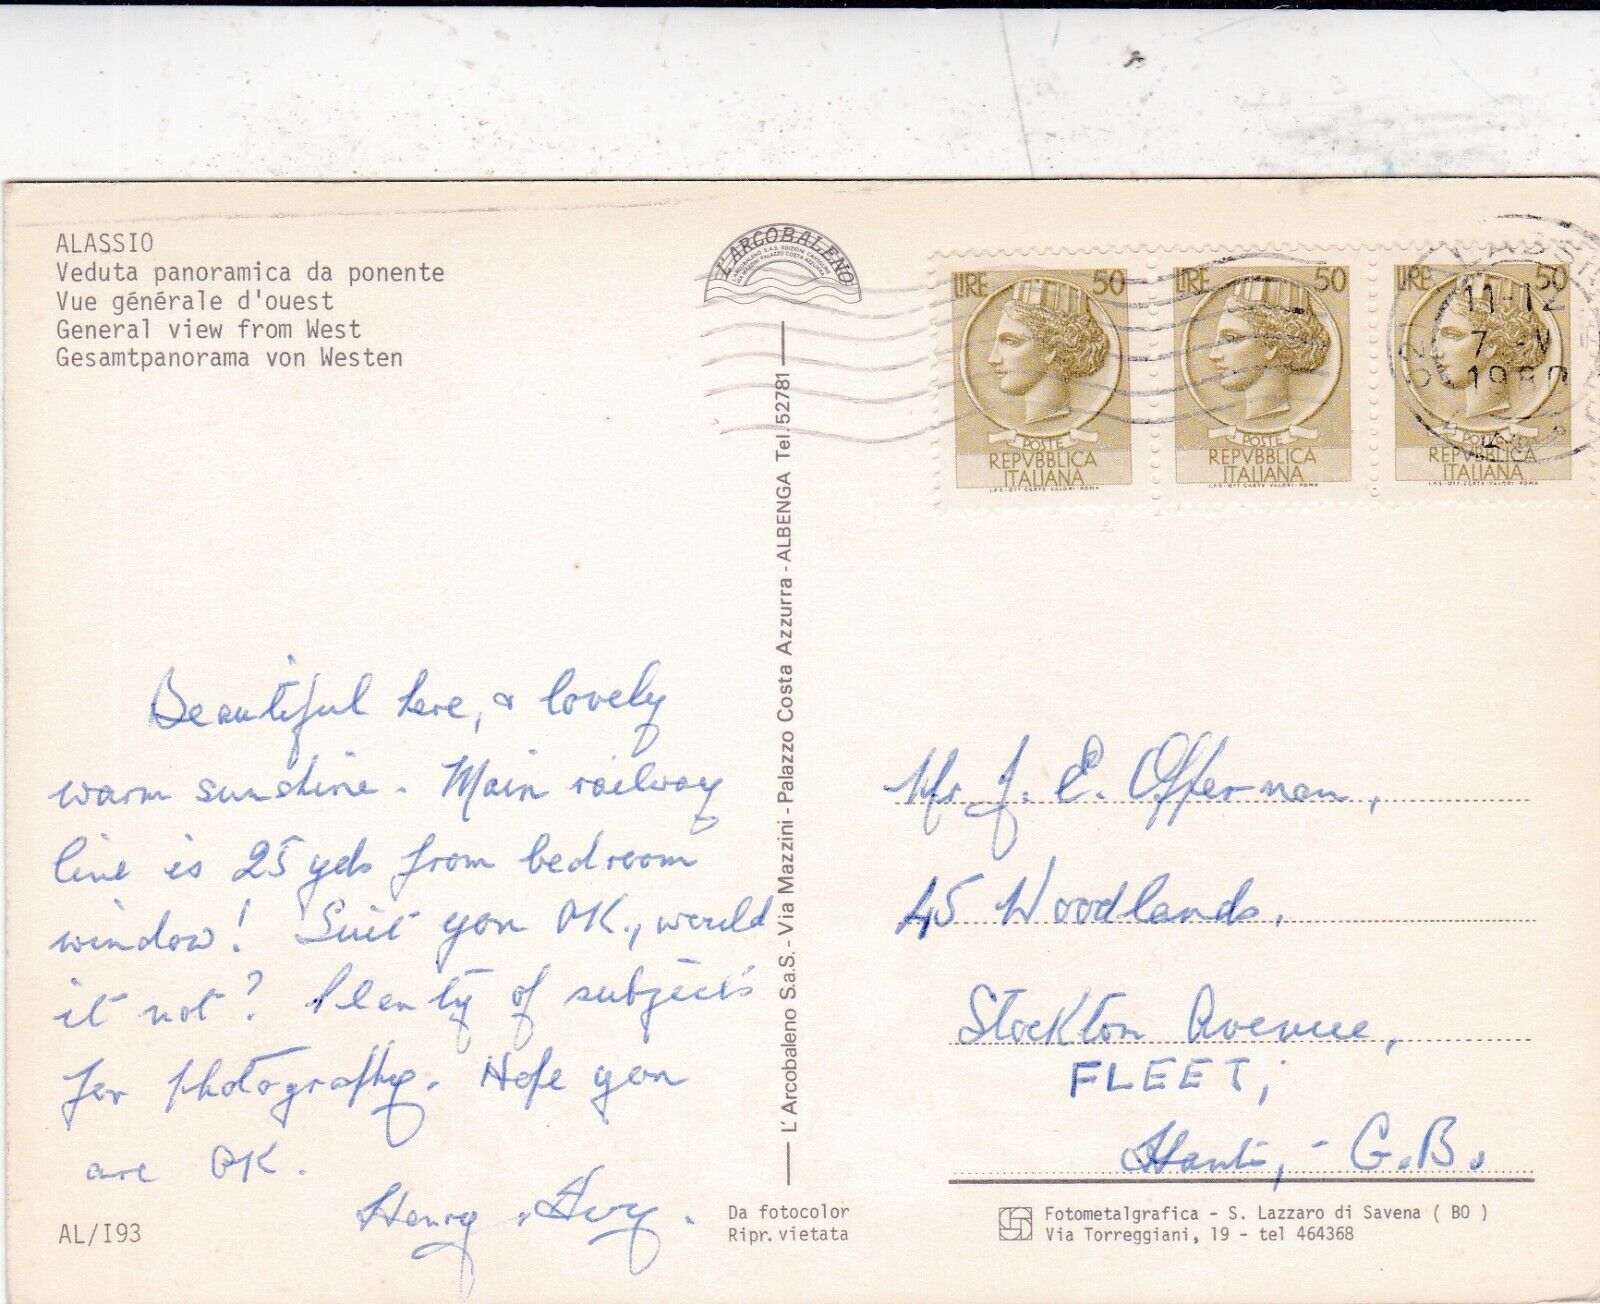 ALASSIO
Veduta panoramica da ponente
Vue générale d'ouest
General view from West
Gesamtpanorama von Westen
L'ARCOBALENO
LIRE 50
POSTE
REPVBBLICA
ITALIANA
I.P.S. OFF. CARTE VALORI ROMA
LIRE 50
POSTE
REPVBBLICA
ITALIANA
I.P.S. OFF. CARTE VALORI ROMA
LIRE 50
POSTE
REPVBBLICA
ITALIANA
I.P.S. OFF. CARTE VALORI ROMA
11-12
7 - V
Beautiful here, & lovely
warm sunshine. Main railway
line is 25 yds from bedroom
window! Suit you OK., would
it not? Plenty of subjects
for photography. Hope you
are OK.
Henry
AL/I93
L'Arcobaleno S.a.S. - Via Mazzini - Palazzo Costa Azzurra - ALBENGA Tel. 52781
Mr J. E. Offerman,
45 Woodlands,
Stockton Avenue,
FLEET,
Hants, - G.B.
Da fotocolor
Ripr. vietata
Fotometalgrafica - S. Lazzaro di Savena ( BO )
Via Torreggiani, 19 - tel 464368